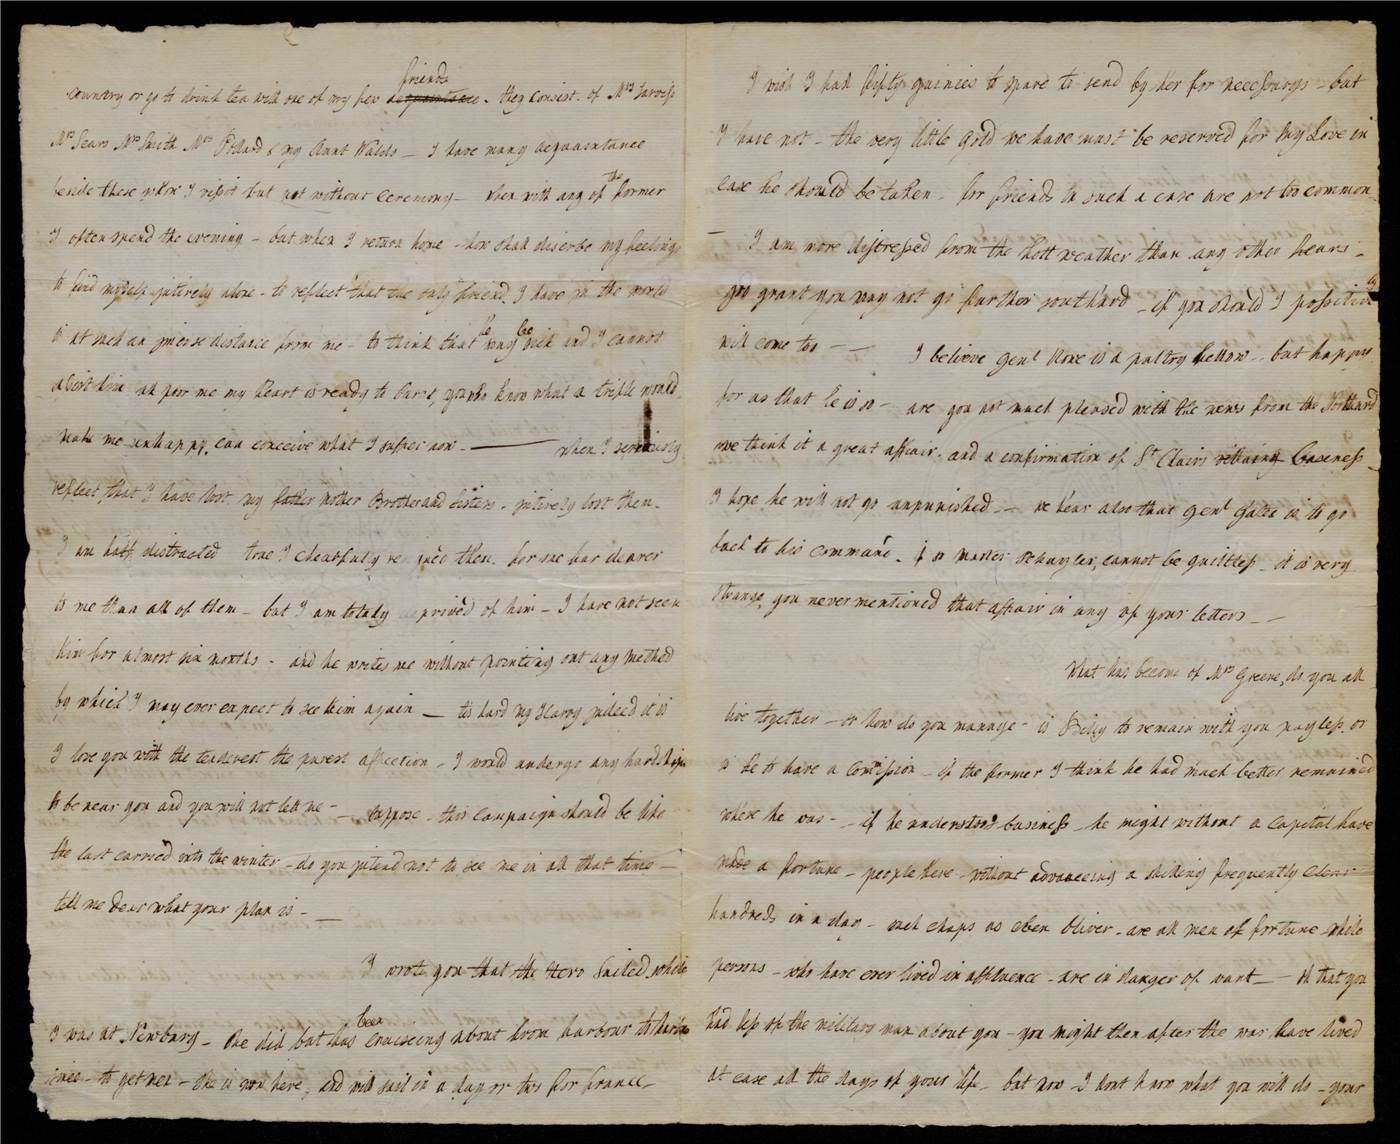 country or go to drink tea with one of my few acquaintance friends - they consist of Mrs Jarvis
Mrs Sears Mrs Smith Mrs Pollard & my Aunt Waldo - I have many acquaintance
beside these whom I visit but not without ceremony - when with any of the former
I often spend the evening - but when I return home - how shall discribe my feelings
to find myself intirely alone - to reflect that the only friend I have in the world
is at such an imense distance from me - to think that he may be sick and I cannot
assist him ah poor me my heart is ready to burst, you who know what a trifle would
make me unhappy, can conceive what I suffer now - when I seriously
reflect that I have lost my father Mother Brother and Sisters - intirely lost them -
I am half distracted true I chearfuly resigned them for one far dearer
to me than all of them - but I am totaly deprived of him - I have not seen
him for almost six months - and he writes me without pointing out any method
by which I may ever expect to see him again - tis hard my Harry indeed it is
I love you with the tenderest the purest affection - I would undergo any hardships
to be near you and you will not let me - suppose this campaign should be like
the last carried into the winter - do you intend not to see me in all that time -
tell me dear what your plan is -
I wrote you that the Hero Sailed while
I was at Newbury - She did but has been cruiseing about from harbour to harbor
since - to get men - she is now here, and will sail in a day or two for france -
I wish I had fifty guinies to spare to send by her for necessarys - but
I have not - the very little gold we have must be reserved for my Love in
case he should be taken - for friends in such a case are not too common
- I am more distressed from the hott weather than any other fears -
god grant you may not go further southard - if you should I possitively
will come too - I believe Genl Howe is a paltry fellow - but happy
for as that he is so - are you not much pleased with the news from the Northard
we think it a great affair - and a confirmation of St Clairs villainy baseness
I hope he will not go unpunished - we hear also that Genl Gates is to go
back to his command - if so master Schuyler, cannot be guiltless - it is very
strange, you never mentioned that affair in any of your letters -
What has become of Mrs Greene, do you all
live together - or how do you manage - is Billy to remain with you payless or
is he to have a Comission - if the former I think he had much better remained
where he was - if he understood business - he might without a capital have
made a fortune - people here - without advanceing a shilling frequently clear
hundreds in a day - such chaps as Eben Oliver - are all men of fortune while
persons - who have ever lived in affluence - are in danger of want - oh that you
had less of the military man about you - you might then after the war have lived
at ease all the days of your life - but now I dont know what you will do - your